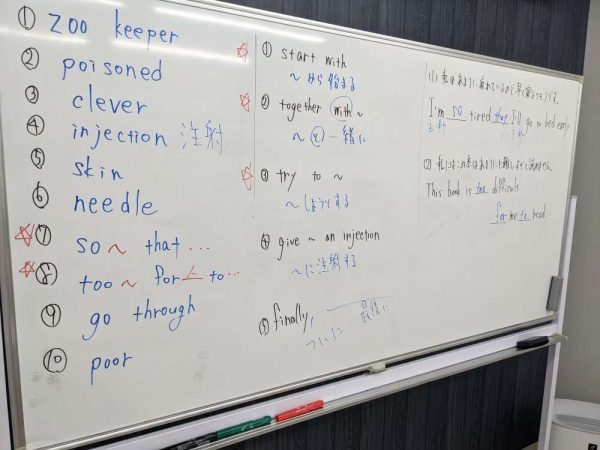 ① zoo keeper
② poisoned
③ clever
④ injection 注射
⑤ skin
⑥ needle
☆⑦ so ~ that ...
☆⑧ too ~ for 人 to ...
⑨ go through
⑩ poor
☆① start with
~から始まる
☆② together with ~
~と一緒に
☆③ try to ~
~しようとする
④ give ~ an injection
~に注射する
⑤ finally,
ついに 最後に
(1) 私はあまりに疲れているので早く寝るつもりです。
I'm so tired that I'll go to bed early
(2) 私にはこの本はあまりにも難しすぎて読めません。
This book is too difficult
for me to read